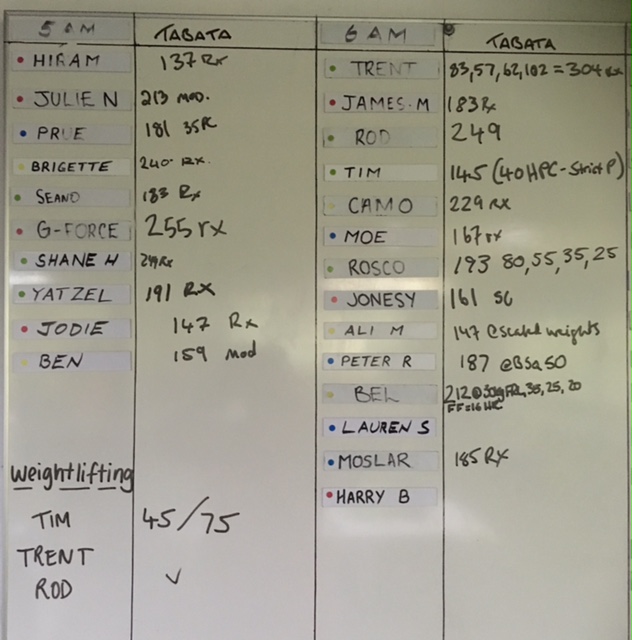 5 AM TABATA
HIRAM 137 Rx
JULIE N 213 MOD.
PRUE 181 35R
BRIGETTE 240. RX.
SEANO 183 Rx
G-FORCE 255 rx
SHANE H 249 Rx
YATZEL 191 RX
JODIE 147 Rx
BEN 159 Mod
weightlifting
TIM 45/75
TRENT
ROD ✓
6 AM TABATA
TRENT 83,57,62,102 = 304 rx
JAMES.M 183 Rx
ROD 249
TIM 145 (40HPC-Strict P)
CAMO 229 RX
MOE 167 rx
ROSCO 193 80,55,35,25
JONESY 161 SC
ALI M 147 @scaled weights
PETER R 187 @BSQ 50
BEL 212@ 35, 25, 20
FF=16
LAUREN S
MOSLAR 185 RX
HARRY B